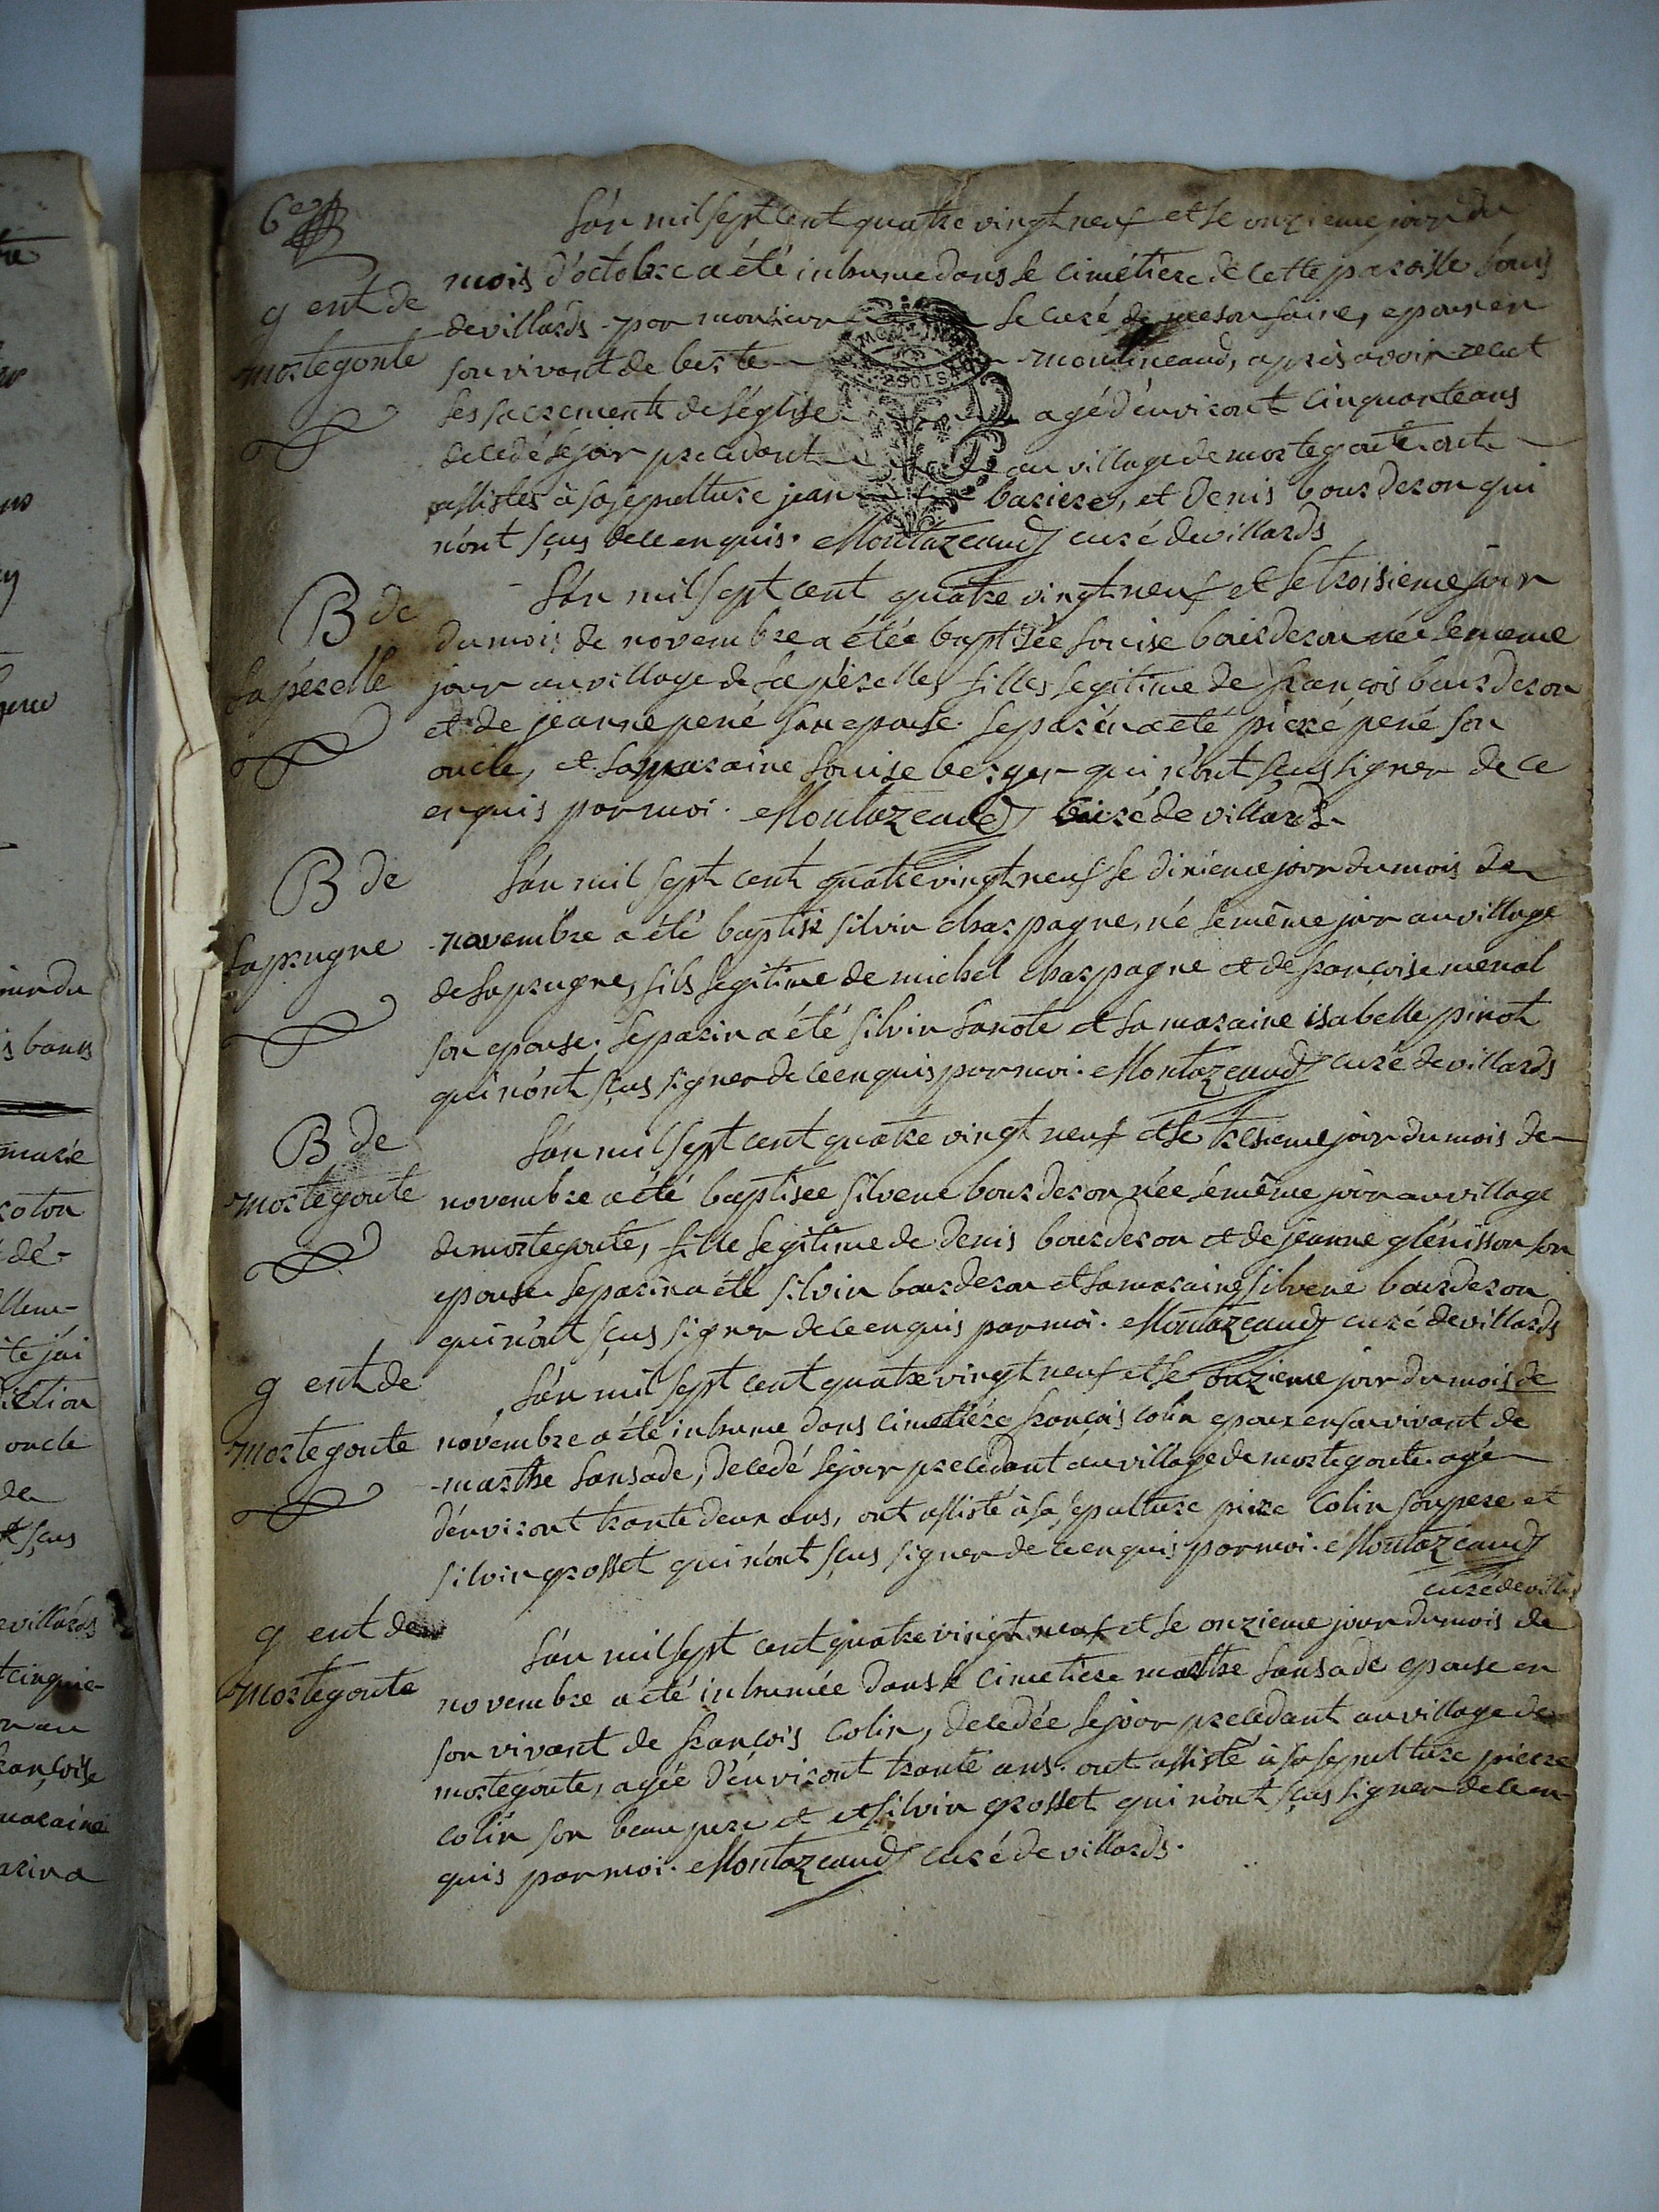 6e
L'an mil sept cent quatre vingt neuf et le onzieme jour du
g ent de
mortegoute
mois d'octobre a été inhume dans le cimétiere de cette paroisse louis
devillards par monsieur le curé de maison faine, epoux en
son vivant de berte moulineaud, après avoir recut
les sacrement de l'église agé d'environt cinquante ans
decedé le jour precedant au village de mortegoute. ont
assistés à sa sepulture jean bariere, et Denis bourderon qui
n'ont sçus de ce enquis. Montazeaud curé de villards
B de
la pérelle
L'an mil sept cent quatre vingt neuf et le troisieme jour
du mois de novembre a étée baptisée louise bourderon née le meme
jour au village de la pérelle, fille legitime de françois bourderon
et de jeanne pené son epouse. le parin a été pierre pené son
oncle, et la maraine louise berger qui n'ont sçus signer de ce
enquis par moi. Montazeaud curé de villards
B de
laprugne
L'an mil sept cent quatre vingt neuf le dixieme jour du mois de
novembre a été baptisé silvin charpagne, né le même jour au village
de laprugne, fils legitime de michel charpagne et de françoise menal
son epouse. le parin a été silvin lanote et la maraine isabelle pinot
qui n'ont sçus signer de ce enquis par moi. Montazeaud curé de villards
B de
mortegoute
L'an mil sept cent quatre vingt neuf et le tresieme jour du mois de
novembre a été baptisee silvene bourderon née le même jour au village
de mortegoute, fille legitime de Denis bourderon et de jeanne glénisson son
epouse le parin a été silvin bourderon et la maraine silvene bourderon
qui n'ont sçus signer de ce enquis par moi. Montazeaud curé de villards
g ent de
mortegoute
L'an mil sept cent quatre vingt neuf et le onzieme jour du mois de
novembre a été inhume dans cimetiére françois colin epoux en son vivant de
marthe lansade, decedé le jour precedant au village de mortegoute agé
d'environt trante deux ans, ont assisté à sa sepulture pierre colin son pere et
silvin grosset qui n'ont sçus signer de ce enquis par moi. Montazeaud
curé de villards
g ent de
mortegoute
L'an mil sept cent quatre vingt neuf et le onzieme jour du mois de
novembre a été inhumée dans le cimetiere marthe lansade epouse en
son vivant de françois colin, decedée le jour precedant au village de
mortegoute, agée d'environt trante ans. ont assisté à sa sepulture pierre
colin son beau pere et et silvin grosset qui n'ont sçus signer de ce en
quis par moi. Montazeaud curé de villards.